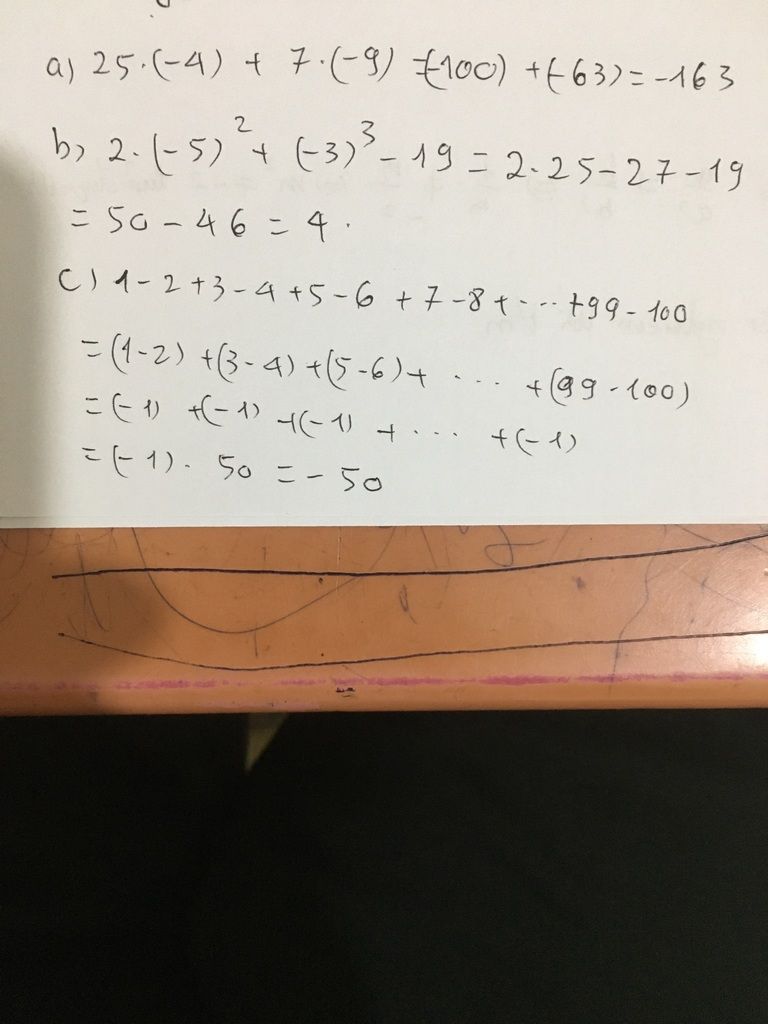 a) 25.(-4) + 7.(-9) =(-100) +(-63) = -163
b) 2.(-5)² + (-3)³ - 19 = 2.25-27-19
= 50 - 46 = 4.
c) 1-2+3-4+5-6+7-8+...+99-100
=(1-2)+(3-4)+(5-6)+ ... +(99-100)
=(-1)+(-1)+(-1)+ ... +(-1)
=(-1). 50 = -50